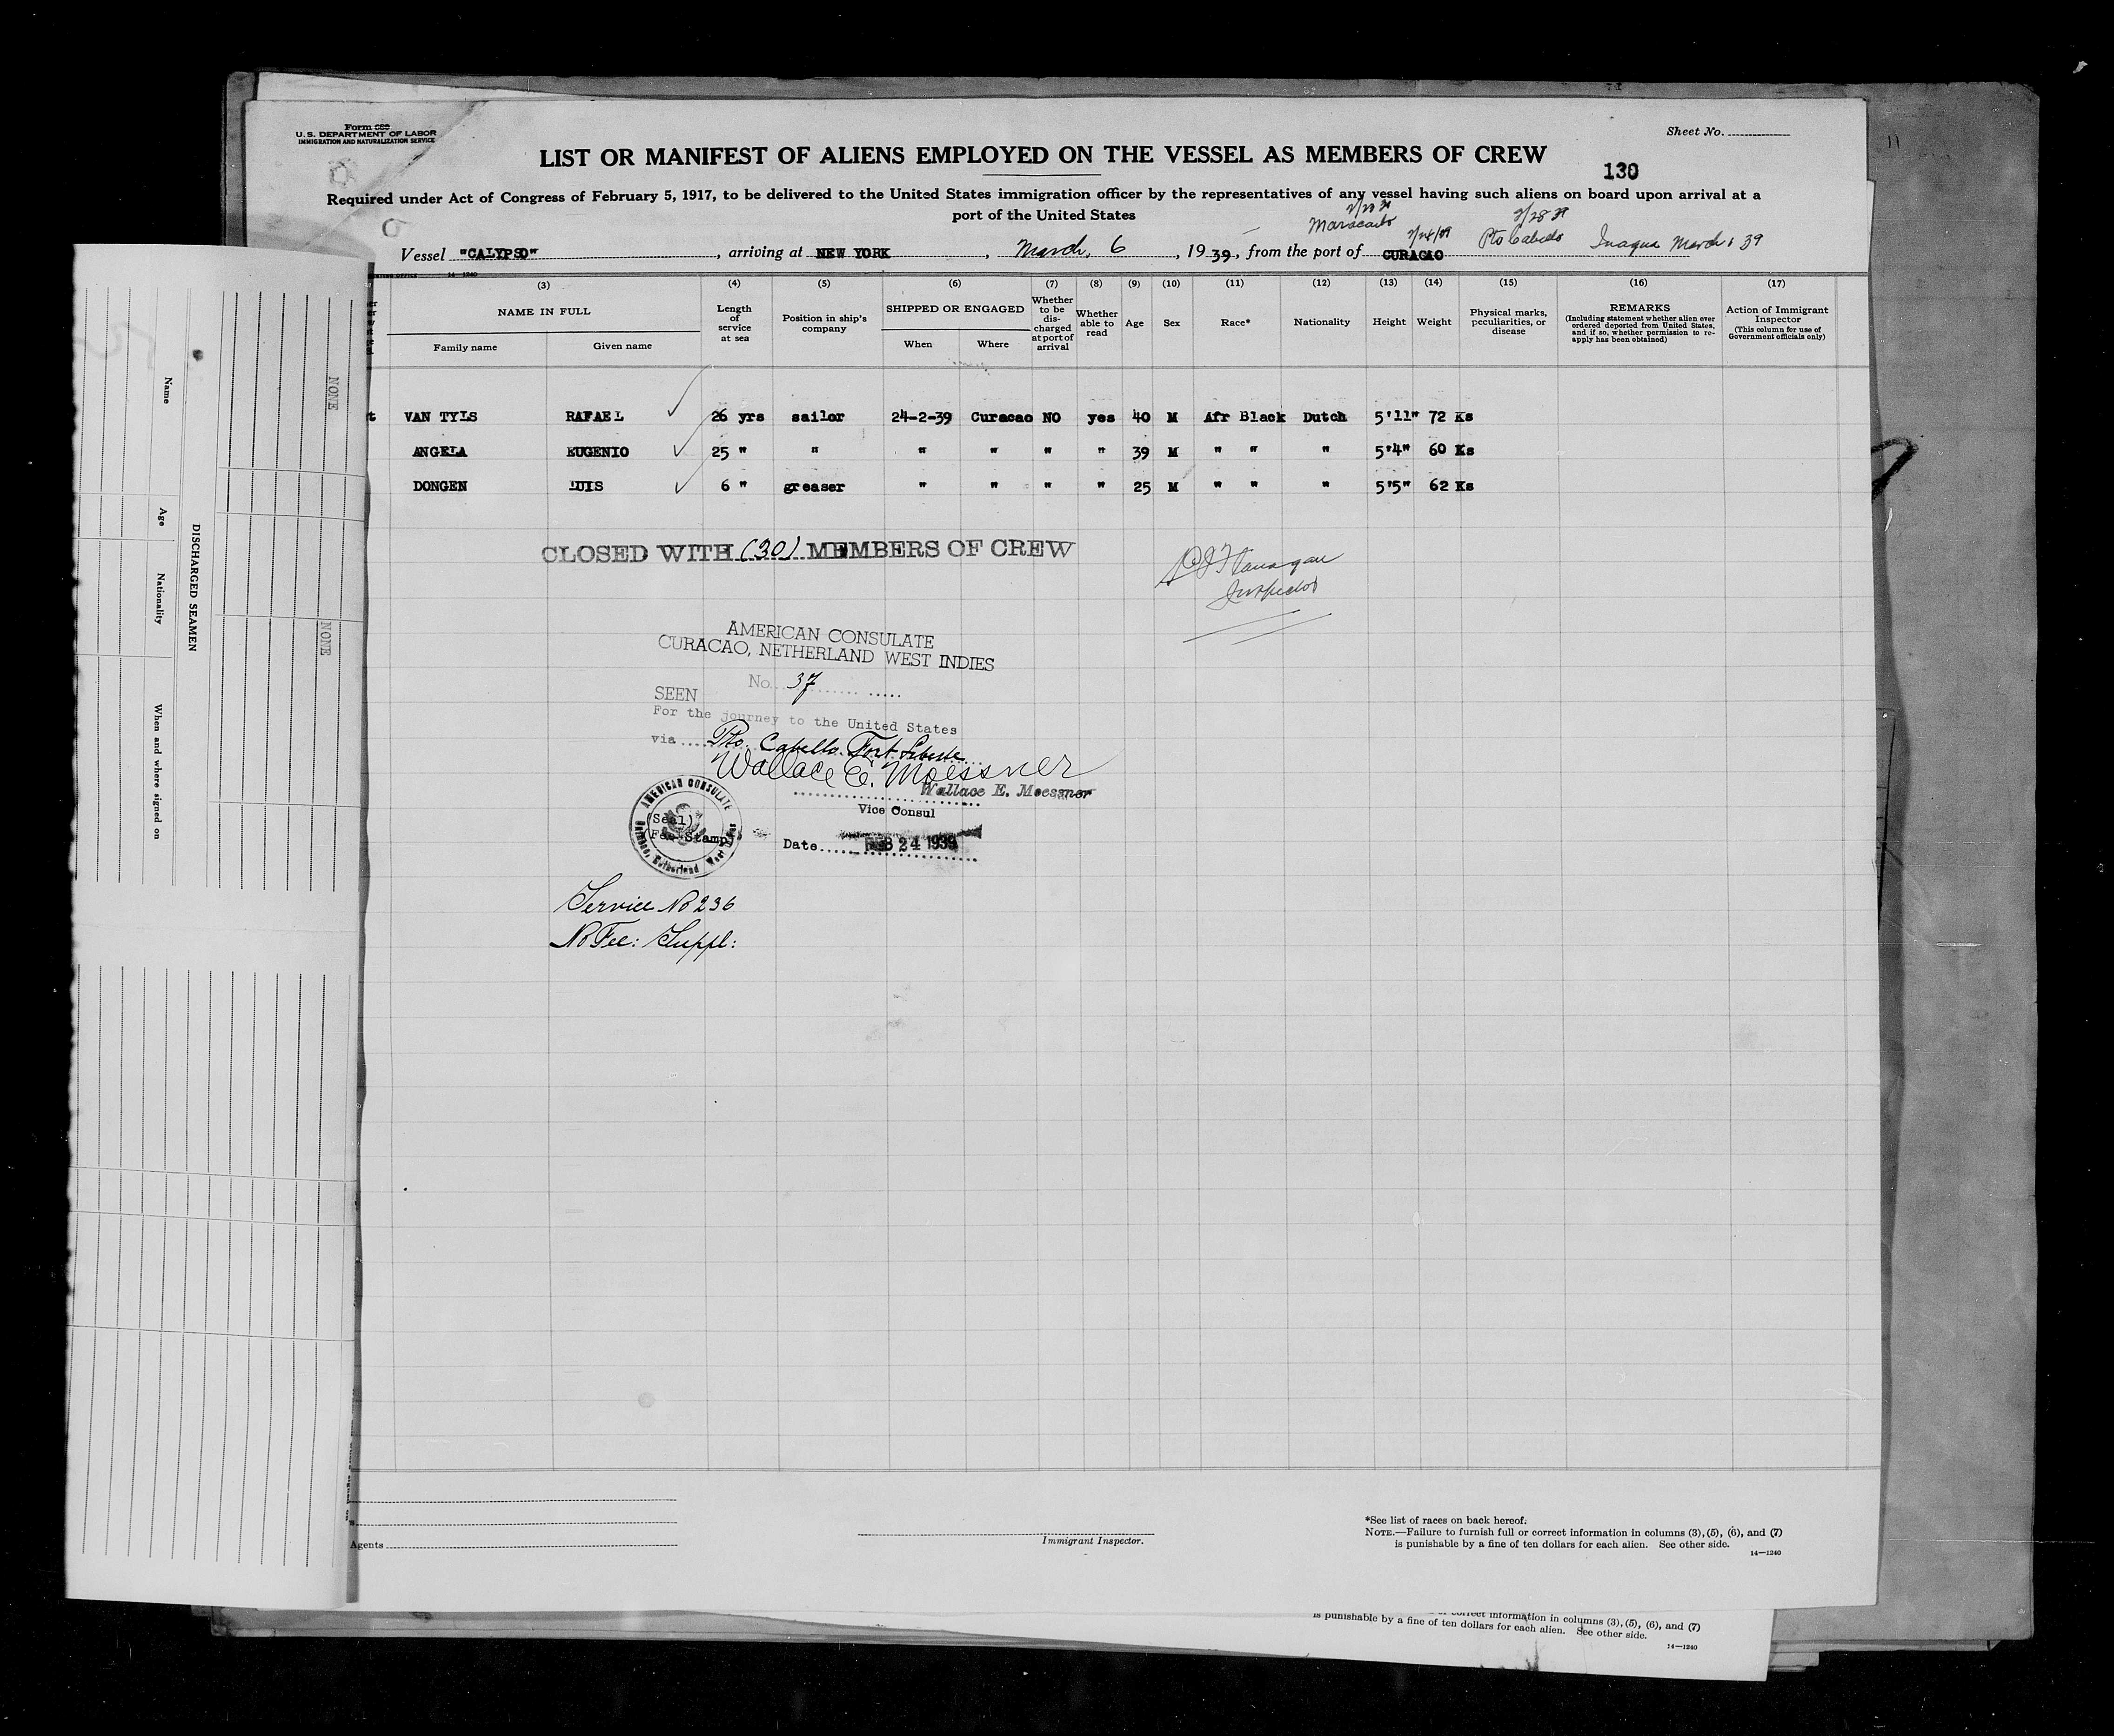 Form 680
U.S. DEPARTMENT OF LABOR
IMMIGRATION AND NATURALIZATION SERVICE
Sheet No.
LIST OR MANIFEST OF ALIENS EMPLOYED ON THE VESSEL AS MEMBERS OF CREW
130
Required under Act of Congress of February 5, 1917, to be delivered to the United States immigration officer by the representatives of any vessel having such aliens on board upon arrival at a
port of the United States
Maracaibo 2/28 39
Vessel "CALYPSO", arriving at NEW YORK, March, 6, 19 39, from the port of CURACAO 2/24/39 Pto Cabello Inagua March 1 39
14-1240
(3) (4) (5) (6) (7) (8) (9) (10) (11) (12) (13) (14) (15) (16) (17)
NAME IN FULL
Family name Given name
Length of service at sea
Position in ship's company
SHIPPED OR ENGAGED
When Where
Whether to be discharged at port of arrival
Whether able to read
Age
Sex
Race*
Nationality
Height
Weight
Physical marks, peculiarities, or disease
REMARKS
(Including statement whether alien ever ordered deported from United States, and if so, whether permission to reapply has been obtained)
Action of Immigrant Inspector
(This column for use of Government officials only)
VAN TYLS RAFAEL 26 yrs sailor 24-2-39 Curacao NO yes 40 M Afr Black Dutch 5'11" 72 Ks
ANGELA EUGENIO 25 " " " " " " 39 M " " " 5'4" 60 Ks
DONGEN LUIS 6 " greaser " " " " 25 M " " " 5'5" 62 Ks
CLOSED WITH (30) MEMBERS OF CREW
Flanagan
Inspector
AMERICAN CONSULATE
CURACAO, NETHERLAND WEST INDIES
No. 37
SEEN
For the journey to the United States
via Pto. Cabello. Fort Liberte
Wallace E. Moessner
Wallace E. Moessner
Vice Consul
AMERICAN CONSULATE
(Seal)
(Fee Stamp)
Date FEB 24 1939
Service No 236
No Fee: Suppl:
NONE
NONE
DISCHARGED SEAMEN
Name
Age
Nationality
When and where signed on
Agents
Immigrant Inspector.
*See list of races on back hereof.
NOTE.—Failure to furnish full or correct information in columns (3), (5), (6), and (7)
is punishable by a fine of ten dollars for each alien. See other side.
14—1240
correct information in columns (3), (5), (6), and (7)
is punishable by a fine of ten dollars for each alien. See other side.
14—1240